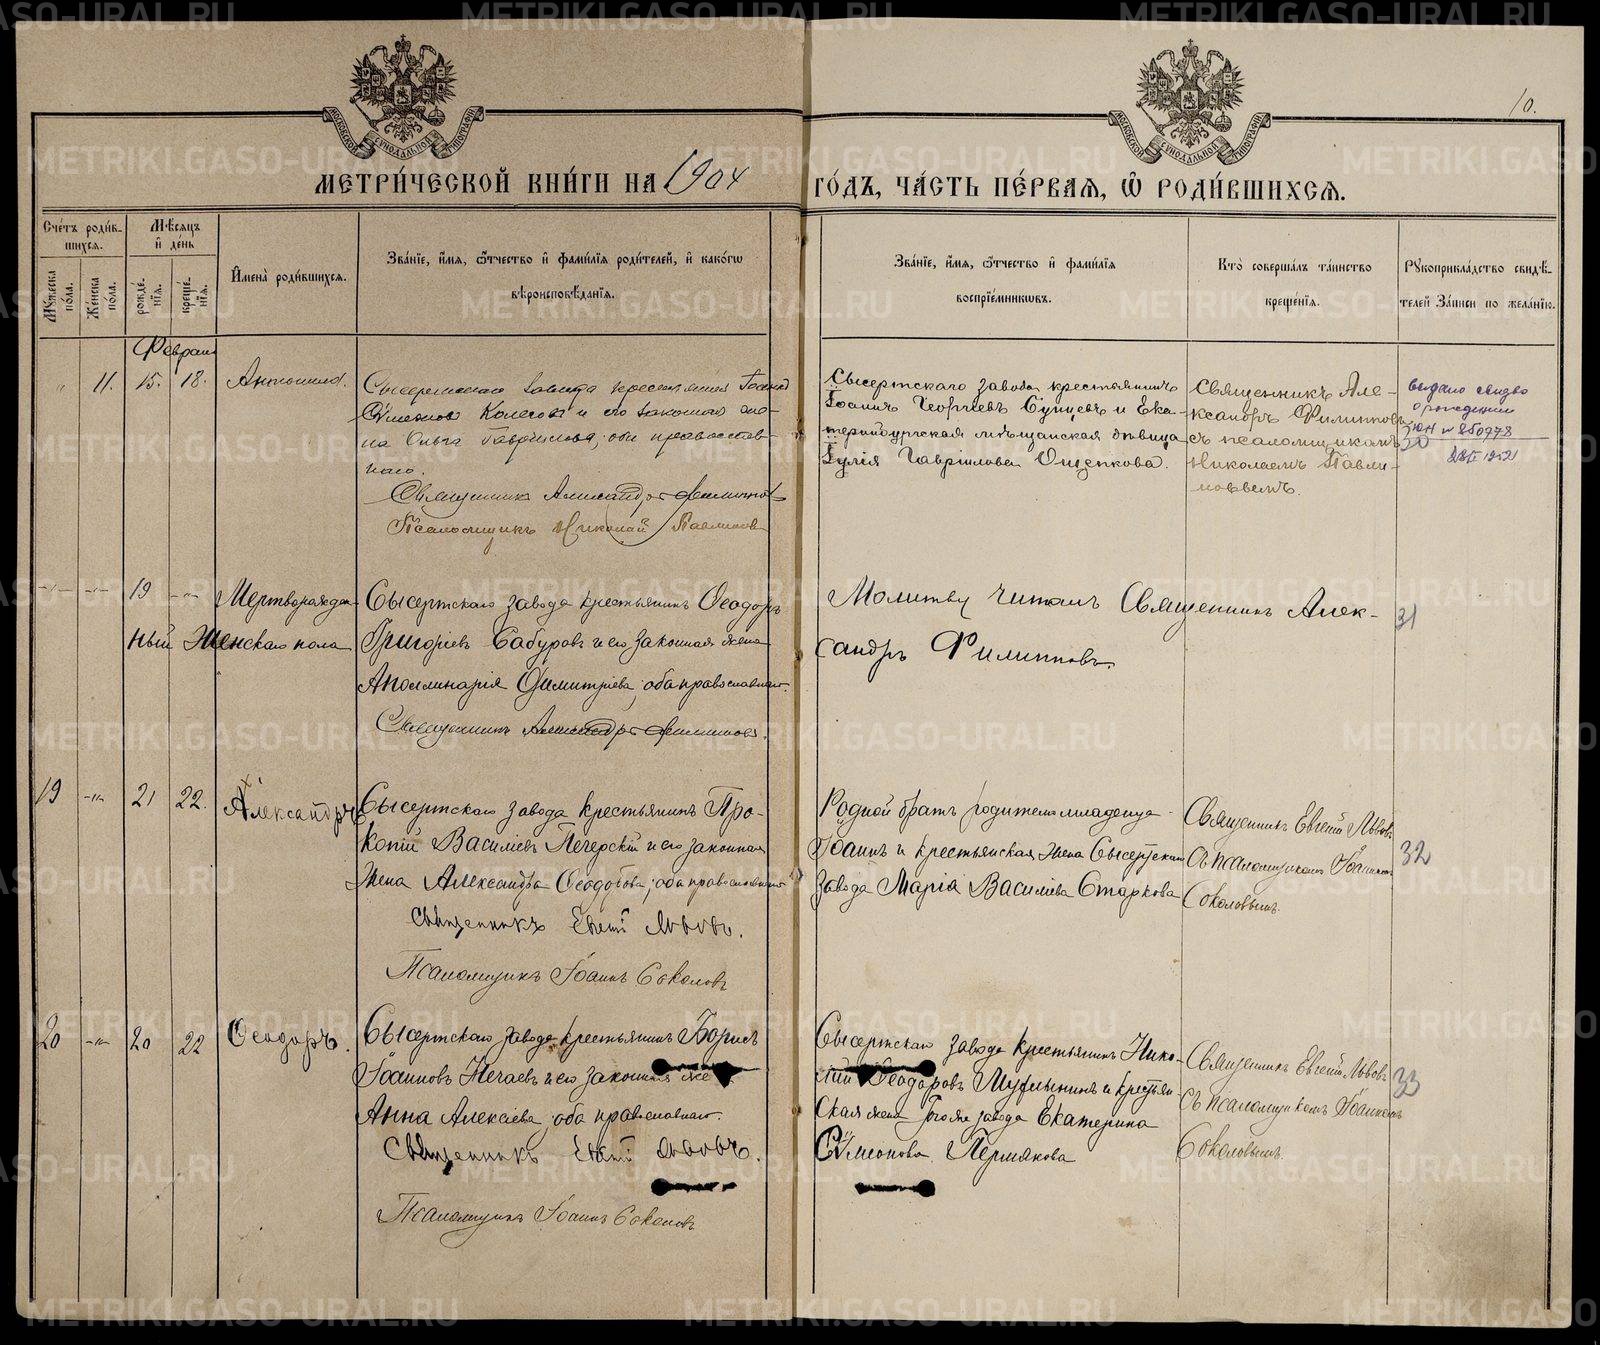 METRIKI.GASO-URAL.RU
МОСКОВСКОЙ СѴНОДАЛЬНОЙ ТИПОГРАФІИ
МОСКОВСКОЙ СѴНОДАЛЬНОЙ ТИПОГРАФІИ
10.
МЕТРИ́ЧЕСКОЙ КНИ́ГИ НА 1904 ГО́ДЪ, ЧА́СТЬ ПЕ́РВАЯ, Ѡ РОДИ́ВШИХСЯ.
Сче́тъ роди́в-
шихся.
Мꙋ́жеска по́ла.
Же́нска по́ла.
Мѣ́сяцъ
и҆ де́нь
рожде́-
нїя.
креще́-
нїя.
И҆мена̀ роди́вшихся.
Зва́нїе, и҆́мя, ѻ҆́тчество и҆ фами́лїя роди́телей, и҆ како́гѡ
вѣроисповѣ́данїя.
Зва́нїе, и҆́мя, ѻ҆́тчество и҆ фами́лїя
воспрїе́мникѡвъ.
Кто̀ соверша́лъ та́инство
креще́нїя.
Рꙋкоприкла́дство свидѣ́-
телей за́писи по жела́нїю.
Февраль
11. 15. 18. Антонина.
Сысертскаго завода крестьянинъ Іоаннъ
Сѵмеоновъ Колеговъ и его законная же-
на Ольга Гавріилова, оба православ-
наго.
Священникъ Александръ Филипповъ
Псаломщикъ Николай Павлиновъ
Сысертскаго завода крестьянинъ
Іоаннъ Георгіевъ Сунцевъ и Ека-
теринбургская мѣщанская дѣвица
Іулія Гавріилова Ощепкова.
Священникъ Але-
ксандръ Филипповъ
съ псаломщикомъ
Николаемъ Павли-
новымъ.
выдано свидво
о рождении
ЮН № 250978
30
19 Мертворожден-
ный Женскаго пола
Сысертскаго завода крестьянинъ Ѳеодоръ
Григоріевъ Сабуровъ и его законная жена
Аполлинарія Димитріева, оба православнаго.
Священникъ Александръ Филипповъ.
Молитву читалъ Священникъ Алек-
сандръ Филипповъ.
31
19 21 22. Александръ
Сысертскаго завода крестьянинъ Про-
копій Василіевъ Печерскій и его законная
жена Александра Ѳеодорова, оба православнаго
Священникъ Евгеній Львовъ.
Псаломщикъ Іоаннъ Соколовъ
Родной братъ родителя младенца
Іоаннъ и крестьянская жена Сысертскаго
завода Марія Василіева Старкова
Священникъ Евгеній Львовъ
съ псаломщикомъ Іоанномъ
Соколовымъ.
32
20 20 22 Ѳеодоръ.
Сысертскаго завода крестьянинъ Борисъ
Іоанновъ Нечаевъ и его законная же
Анна Алексіева, оба православнаго.
Священникъ Евгеній Львовъ.
Псаломщикъ Іоаннъ Соколовъ
Сысертскаго завода крестьянинъ Нико-
лай Ѳеодоровъ и крестьян-
ская жена завода Екатерина
Сѵмеонова Пермякова
Священникъ Евгеній Львовъ
съ псаломщикомъ Іоанномъ
Соколовымъ.
33